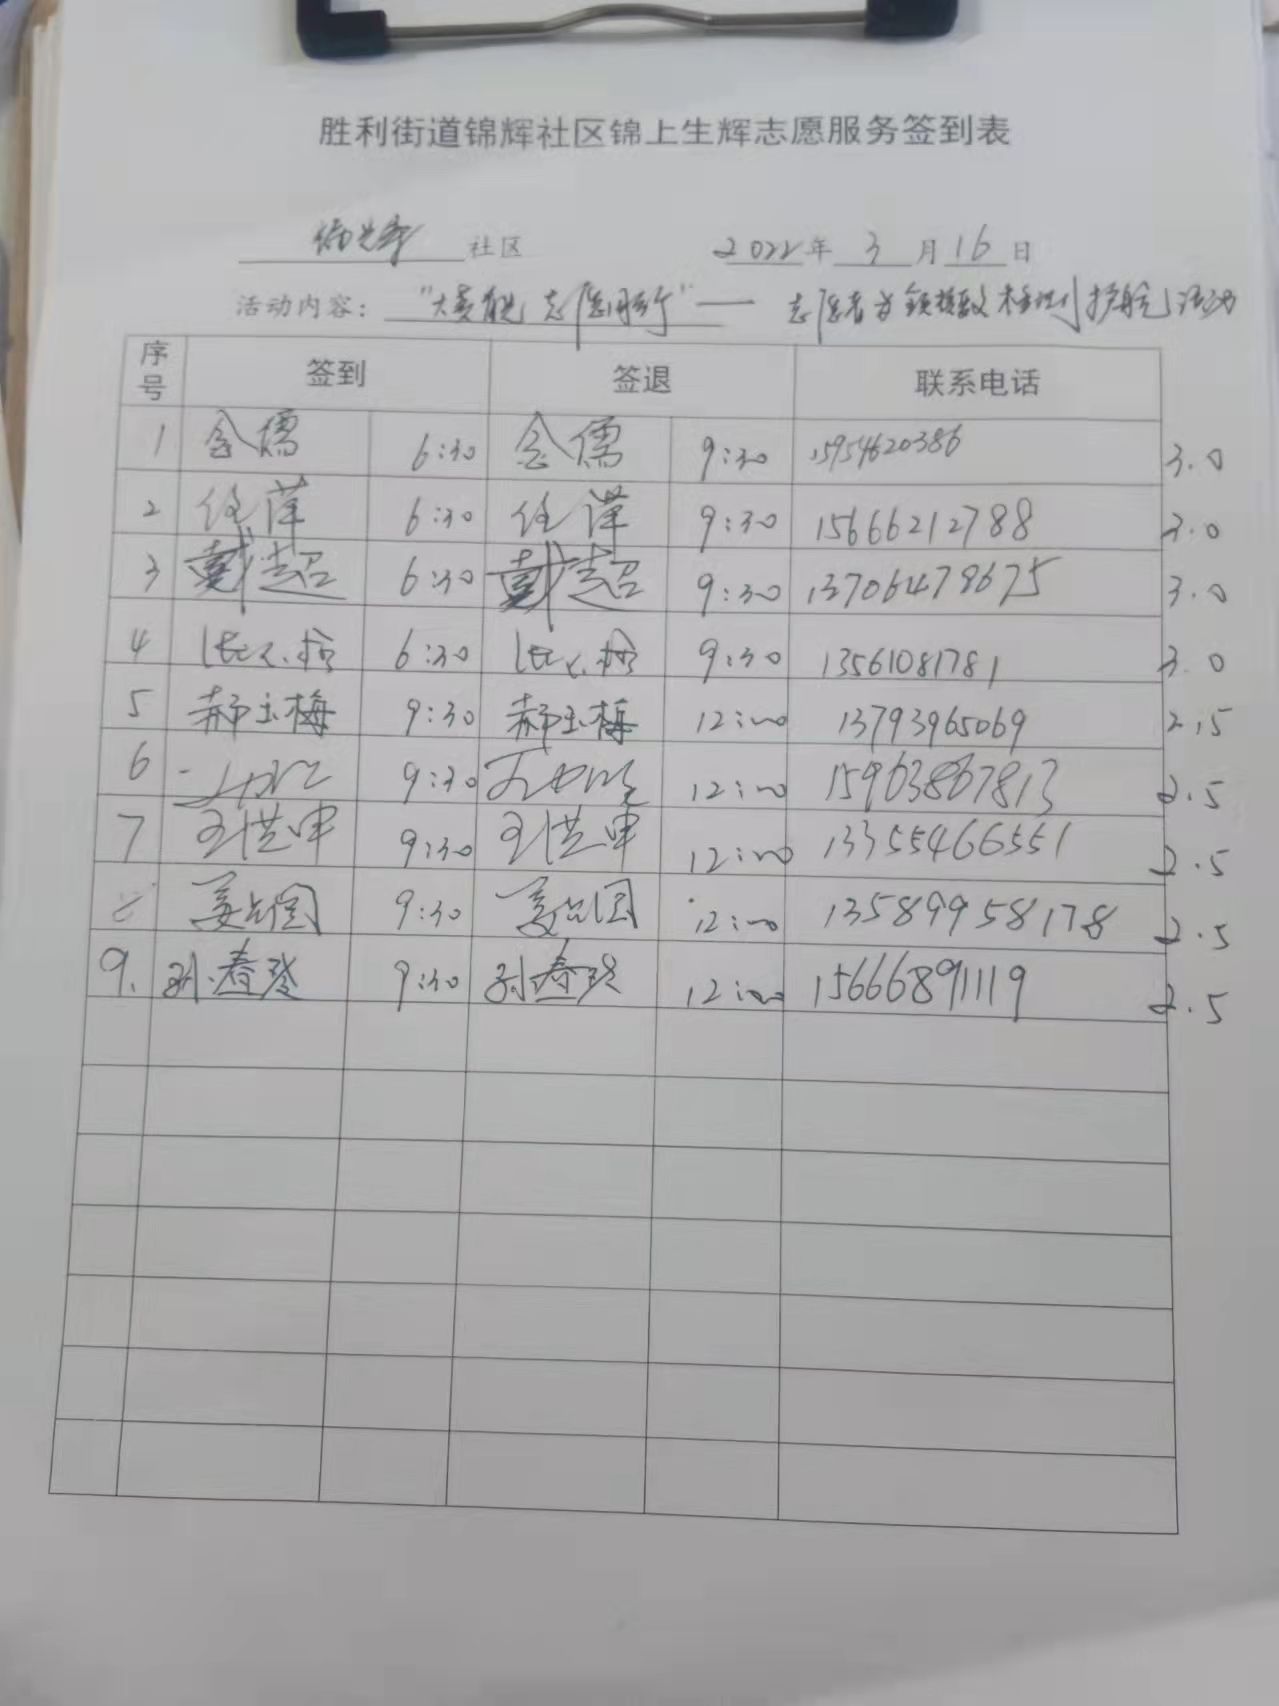 胜利街道锦辉社区锦上生辉志愿服务签到表
锦辉 社区 2022年 3 月 16 日
活动内容： 志愿同行" —— 志愿者为 核酸检测护航活动
序号 签到 签退 联系电话
1 金儒 6:30 金儒 9:30 15954620386 3.0
2 任萍 6:30 任萍 9:30 15666212788 3.0
3 戴超 6:30 戴超 9:30 13706479675 3.0
4 6:30 9:30 13561081781 3.0
5 郝玉梅 9:30 郝玉梅 12:00 13793965069 2.5
6 9:30 12:00 15963867813 2.5
7 王洪申 9:30 王洪申 12:00 13355466551 2.5
8 9:30 12:00 13589958178 2.5
9. 孙春玲 9:30 孙春玲 12:00 15666891119 2.5